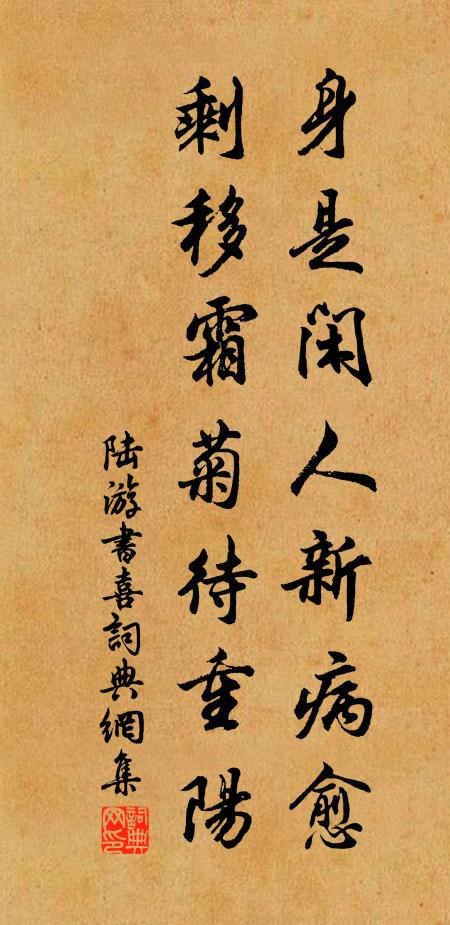 身是闲人新病愈
剩移霜菊待重陽
陆游書喜詞典網集
詞典网印